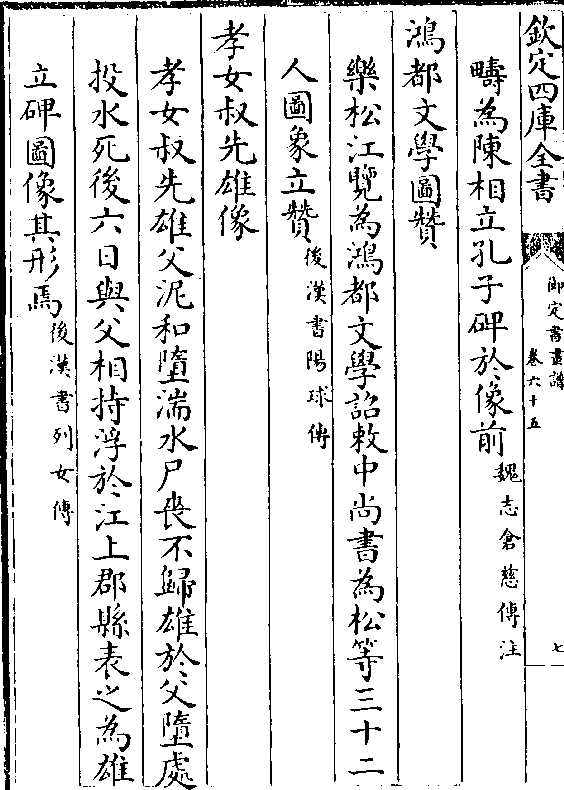 欽定四庫全書
御定書畫譜
卷六十五
七
疇為陳相立孔子碑於像前魏志倉慈傳注
鴻都文學圖贊
樂松江覽為鴻都文學詔敕中尚書為松等三十二
人圖象立贊後漢書陽球傳
孝女叔先雄像
孝女叔先雄父泥和墮湍水尸喪不歸雄於父墮處
投水死後六日與父相持浮於江上郡縣表之為雄
立碑圖像其形焉後漢書列女傳